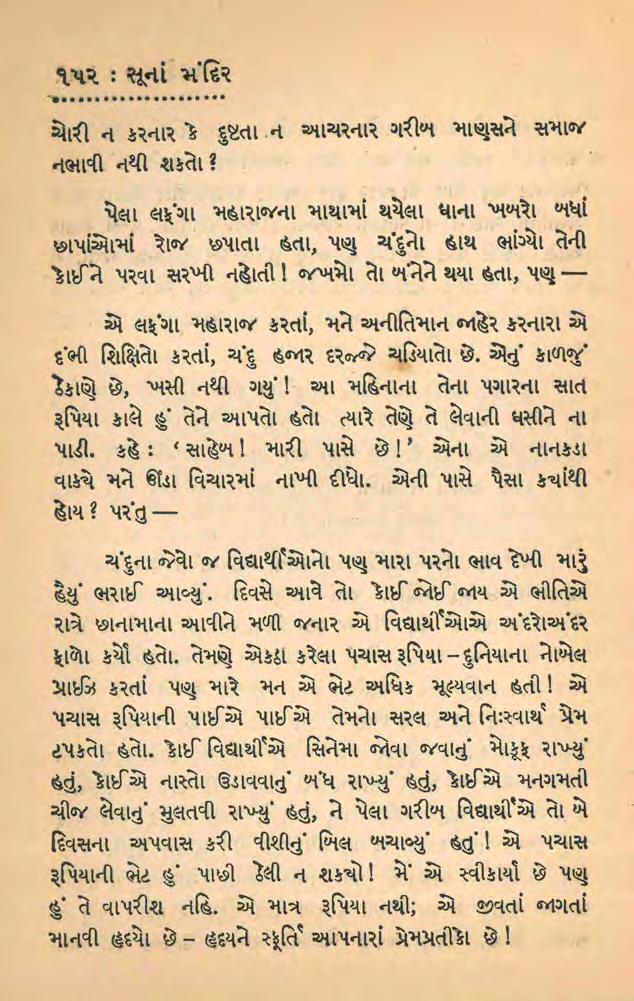 ૧૫૨ : સૂનાં મંદિર
ચોરી ન કરનાર કે દુષ્ટતા ન આચરનાર ગરીબ માણસને સમાજ
નભાવી નથી શકતો ?
પેલા લફંગા મહારાજના માથામાં થયેલા ઘાના ખબરો બધાં
છાપાંઓમાં રોજ છપાતા હતા, પણ ચંદુનો હાથ ભાંગ્યો તેની
કોઈને પરવા સરખી નહોતી ! જખમો તો બંનેને થયા હતા, પણ —
એ લફંગા મહારાજ કરતાં, મને અનીતિમાન જાહેર કરનારા એ
દંભી શિક્ષિતો કરતાં, ચંદુ હજાર દરજ્જે ચડિયાતો છે. એનું કાળજું
ઠેકાણે છે, ખસી નથી ગયું ! આ મહિનાના તેના પગારના સાત
રૂપિયા કાલે હું તેને આપતો હતો ત્યારે તેણે તે લેવાની ઘસીને ના
પાડી. કહે : ‘સાહેબ ! મારી પાસે છે !’ એના એ નાનકડા
વાક્યે મને ઊંડા વિચારમાં નાખી દીધો. એની પાસે પૈસા ક્યાંથી
હોય ? પરંતુ —
ચંદુના જેવો જ વિદ્યાર્થીઓનો પણ મારા પરનો ભાવ દેખી મારું
હૈયું ભરાઈ આવ્યું. દિવસે આવે તો કોઈ જોઈ જાય એ ભીતિએ
રાત્રે છાનામાના આવીને મળી જનાર એ વિદ્યાર્થીઓએ અંદરોઅંદર
ફાળો કર્યો હતો. તેમણે એકઠા કરેલા પચાસ રૂપિયા – દુનિયાના નોબેલ
પ્રાઈઝ કરતાં પણ મારે મન એ ભેટ અધિક મૂલ્યવાન હતી ! એ
પચાસ રૂપિયાની પાઈએ પાઈએ તેમનો સરલ અને નિઃસ્વાર્થ પ્રેમ
ટપકતો હતો. કોઈ વિદ્યાર્થીએ સિનેમા જોવા જવાનું મોકૂફ રાખ્યું
હતું, કોઈએ નાસ્તો ઉડાવવાનું બંધ રાખ્યું હતું, કોઈએ મનગમતી
ચીજ લેવાનું મુલતવી રાખ્યું હતું, ને પેલા ગરીબ વિદ્યાર્થીએ તો બે
દિવસના અપવાસ કરી વીશીનું બિલ બચાવ્યું હતું ! એ પચાસ
રૂપિયાની ભેટ હું પાછી ઠેલી ન શક્યો ! મેં એ સ્વીકાર્યા છે પણ
હું તે વાપરીશ નહિ. એ માત્ર રૂપિયા નથી; એ જીવતાં જાગતાં
માનવી હૃદયો છે – હૃદયને સ્ફૂર્તિ આપનારાં પ્રેમપ્રતીકો છે !